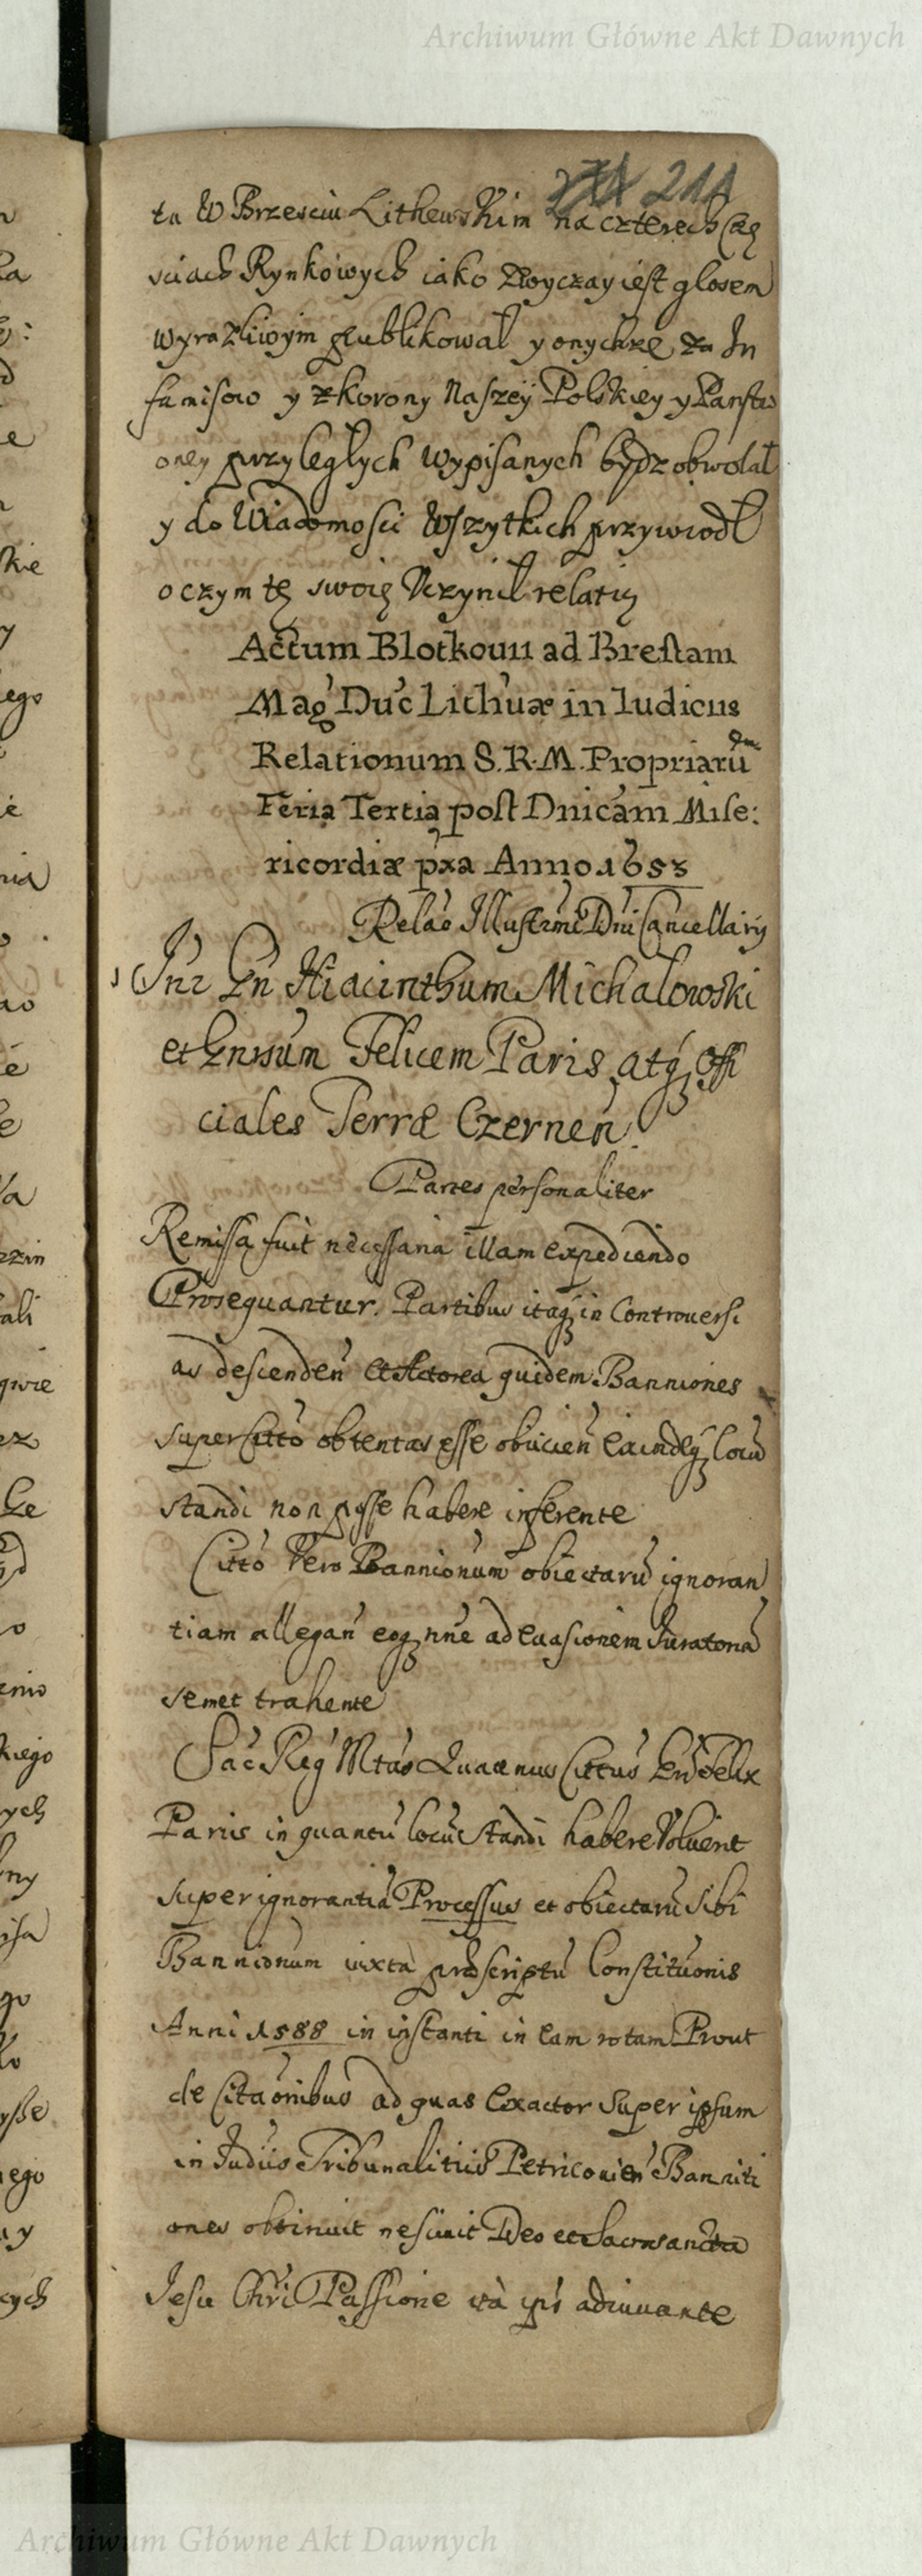 Archiwum Główne Akt Dawnych
211
ta W Brzesciu Lithewskim na czterech Czę
sciach Rynkowych iako Zwyczay iest glosem
wyrazliwym publikował y onychze za In
famisow y z korony Naszey Polskiey y Panstw
oney przyległych Wypisanych bydz obwołał
y do Wiadomosci Wszytkich przywiodł
o czym tę swoię Uczynił relatią
Actum Blotkouii ad Brestam
Mag Duc Lithuæ in Iudicus
Relationum S. R. M. Propriarū
Feria Tertia post Dnicam Mise:
ricordiæ pxa Anno 1653
Relão Illustrmi Dni Cancellarij
Inr Gn Hiacinthum Michalowski
et Gnrsum Felicem Paris atq Offi
ciales Terræ Czernen
Partes personaliter
Remissa fuit necessaria illam expediendo
Prosequantur. Partibus itaq in Controuersi
as descenden et Actorea quidem Banniones
super Citto obtentas esse obiicien eaindeq locū
standi non posse habere inferente
Citto Vero Bannionum obiectarū ignoran
tiam allegan eoq nne ad euasionem Iuratoriā
semet trahente
Sac Reg Mtas Quatenus Cittus Gn Felix
Paris in quantū locū standi habere Voluerit
super ignorantia Processus et obiectarū sibi
Bannionum iuxta prescriptū Constitũonis
Anni 1588 in instanti in eam rotam Prout
de Citaõnibus ad quas Exactor super ipsum
in Iudiis Tribunalitiis Petricouien Banniti
ones obtinuit nesciuit Deo et Sacrosancta
Jesu Chri Passione ità ipi adiuuante
Archiwum Główne Akt Dawnych